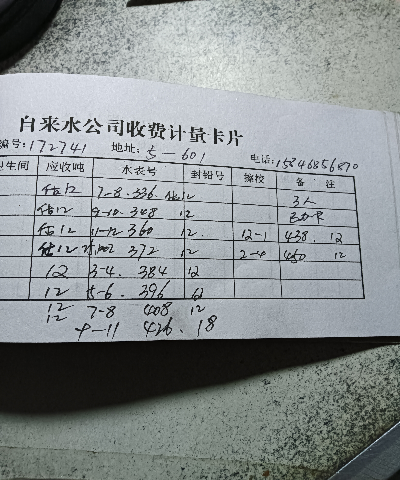 自来水公司收费计量卡片
编号:172741 地址:5-601 电话:15846856870
卫生间 应收吨 水表号 封铅号 鳞校 备注
估12 7-8.336 估12 3人
估12 9-10.348 12
估12 11-12 360 12. 12-1 438. 12
估12 372 12 2-4 450 12
12 3-4. 384 12
12 5-6. 396 12
12 7-8 408 12
12 9-11 426. 18